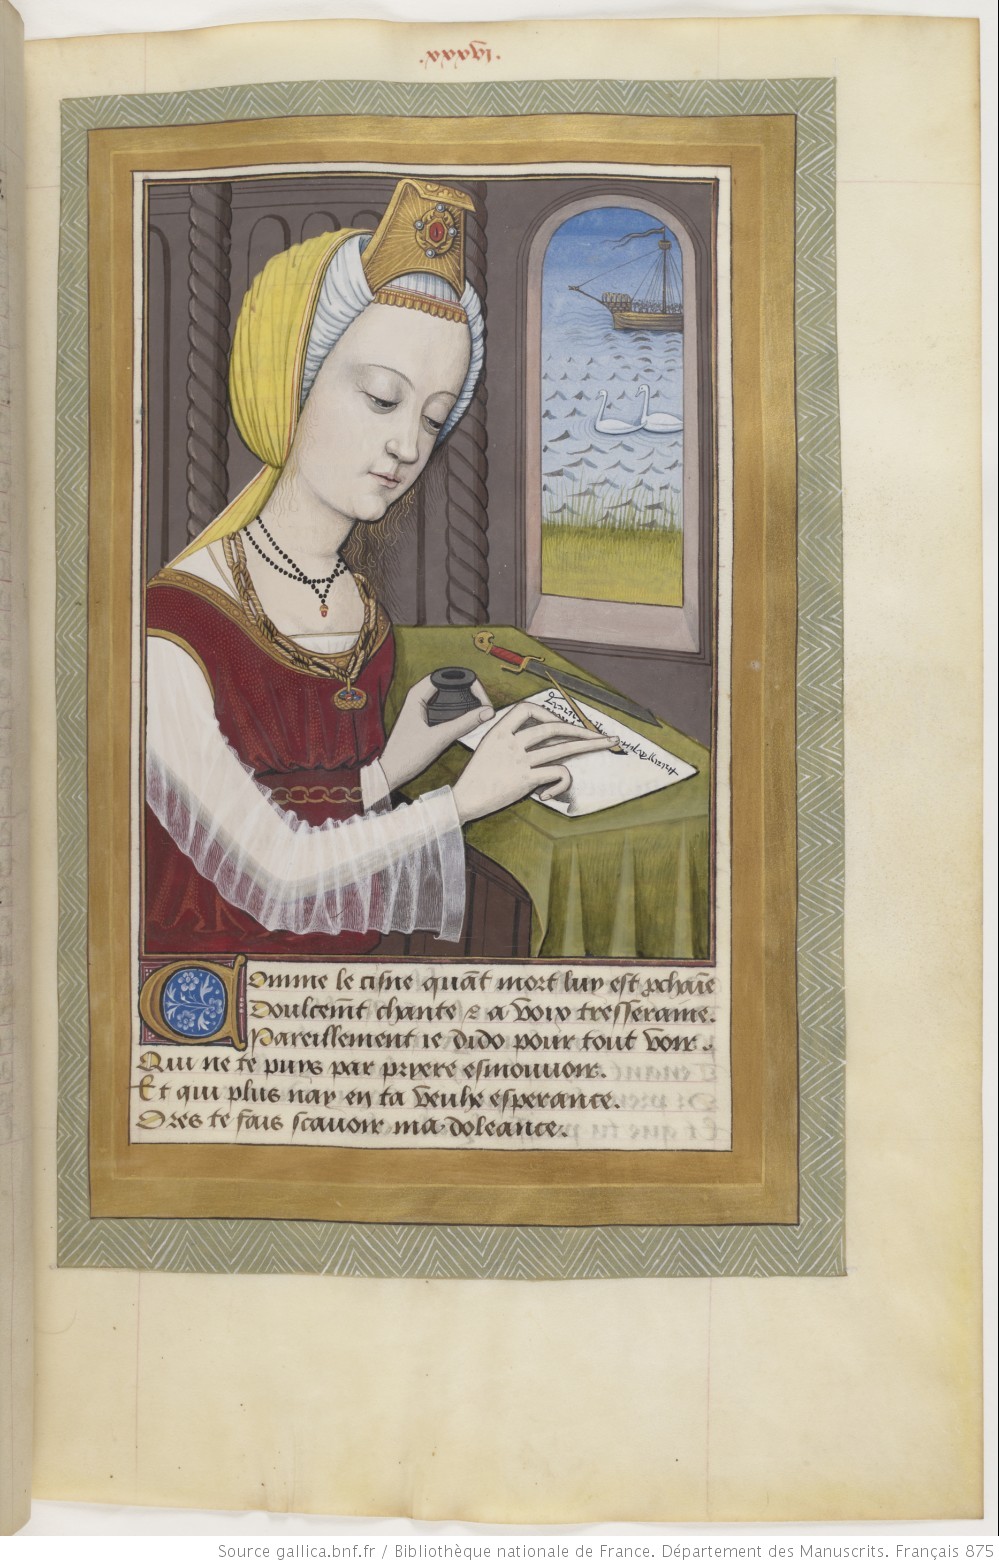 .xxxxi.
Comme le cisne quāt mort luy est ꝓchaīe
Doulcemt chante & a voix tresseraine.
Pareillement ie dido pour tout voir.
Qui ne te puys par pryere esmouuoir.
Et qui plus nay en ta venue esperance.
Ores te fais scauoir ma doleance.
Source gallica.bnf.fr / Bibliothèque nationale de France. Département des Manuscrits. Français 875